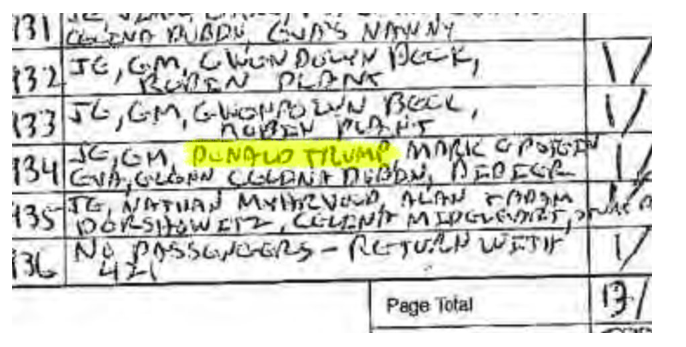 131
CELINA DUBIN, EVA'S NANNY
132 JE, GM, GWENDOLYN BECK,
ROBIN PLANT
133 JE, GM, GWENDOLYN BECK,
ROBIN PLANT
134 JE, GM, DONALD TRUMP, MARK EPSTEIN
EVA, GLENN CELINA DUBIN, DIDIER
135 JE, NATHAN MYHRVOLD, ALAN
DERSHOWITZ, CELINA MIDELFART,
136 NO PASSENGERS - RETURN WITH
421
Page Total 13/